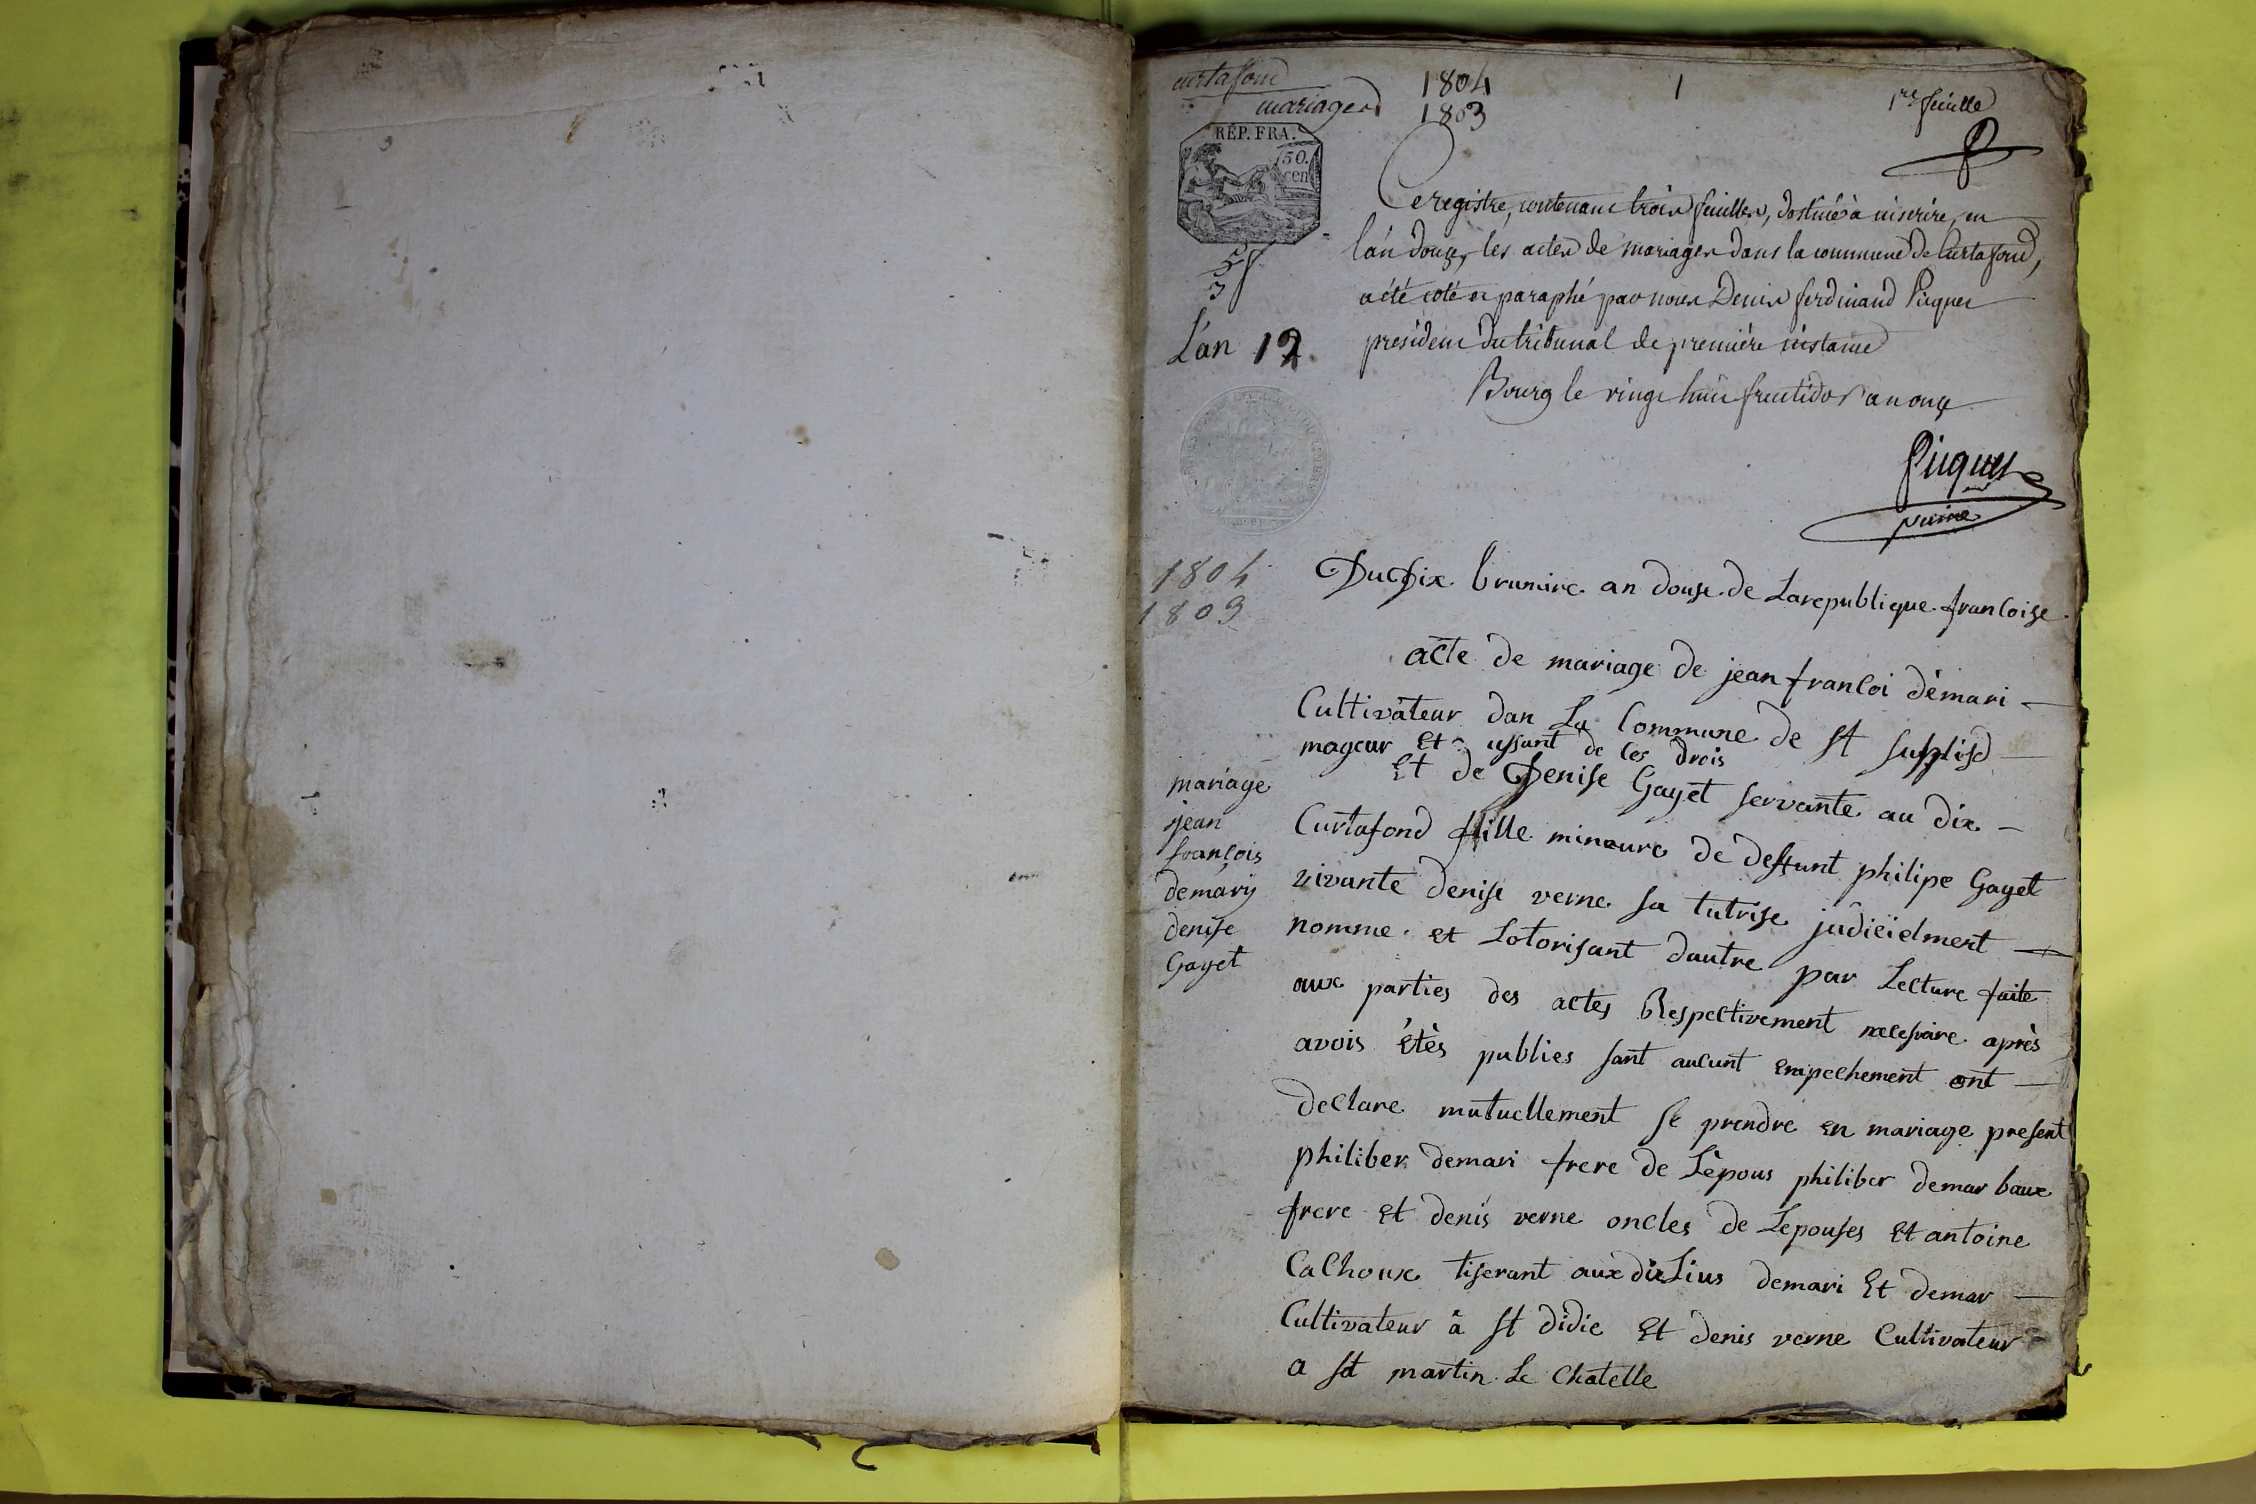 curtafond
mariages
1804
1803
1
1re feuille
RÉP. FRA.
50.
cen
Ce registre, contenant trois feuilles, destiné à inscrire, en
l'an douze, les actes de mariages dans la commune de Curtafond,
a été coté et paraphé par nous Denis ferdinand Picquet
président du tribunal de première instance
Bourg le vingt huit fructidor an onze
L'an 12.
Picquet
1804
1803
Du Dix brumire an douse de Larepublique francoise
acte de mariage de jean francoi démari
Cultivateur dan La Commune de st sulplisd
mageur Et ussant de ces drois
Et de Denise Gayet servante au dix
Curtafond fille mineure de deffunt philipe Gayet
vivante denise verne sa tutrise judiciëlment
nomme et Lotorisant dautre par Lecture faite
aux parties des actes Respectivement necessaire après
avois étès publies sant aucunt empechement ont
declare mutuellement se prendre en mariage present
philiber demari frere de Lépous philiber demar baux
frere Et denis verne oncles de Lepouses Et antoine
Calhoux tiserant aux dix Lius demari Et demar
Cultivateur à st didie Et denis verne Cultivateur
a st martin Le Chatelle
mariage
jean
françois
demary
denise
Gayet